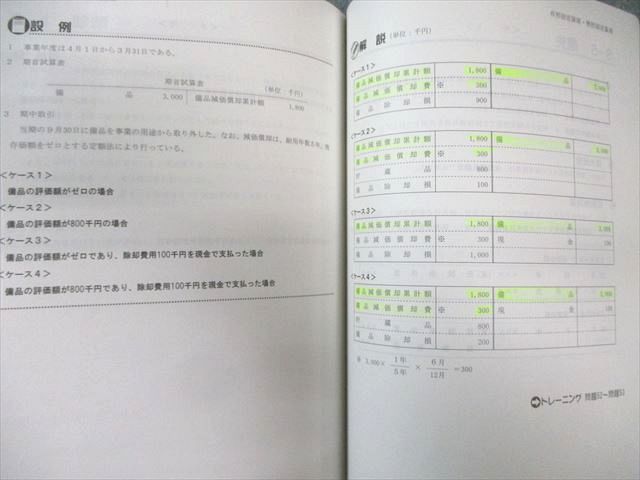 設例
1 事業年度は4月1日から3月31日である。
2 期首試算表
期首試算表 (単位：千円)
備品 3,000 備品減価償却累計額 1,800
3 期中取引
当期の9月30日に備品を事業の用途から取り外した。なお、減価償却は、耐用年数5年、残
存価額をゼロとする定額法により行っている。
<ケース1>
備品の評価額がゼロの場合
<ケース2>
備品の評価額が800千円の場合
<ケース3>
備品の評価額がゼロであり、除却費用100千円を現金で支払った場合
<ケース4>
備品の評価額が800千円であり、除却費用100千円を現金で支払った場合
有形固定資産・無形固定資産
解説 (単位：千円)
<ケース1>
備品減価償却累計額 1,800 備品 3,000
備品減価償却費 ※ 300
備品除却損 900
<ケース2>
備品減価償却累計額 1,800 備品 3,000
備品減価償却費 ※ 300
貯蔵品 800
備品除却損 100
<ケース3>
備品減価償却累計額 1,800 備品 3,000
備品減価償却費 ※ 300 現金 100
備品除却損 1,000
<ケース4>
備品減価償却累計額 1,800 備品 3,000
備品減価償却費 ※ 300 現金 100
貯蔵品 800
備品除却損 200
※ 3,000× 1年/5年 × 6月/12月 =300
トレーニング 問題52~問題53